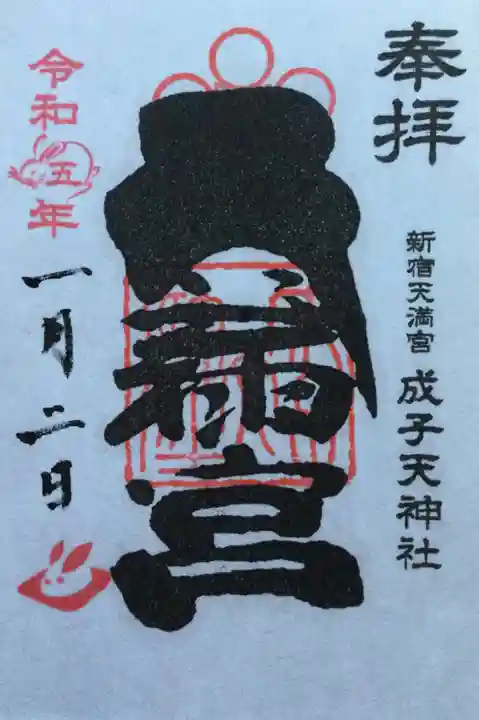 奉拝
新宿天満宮 成子天神社
宮
令和五年
一月二日